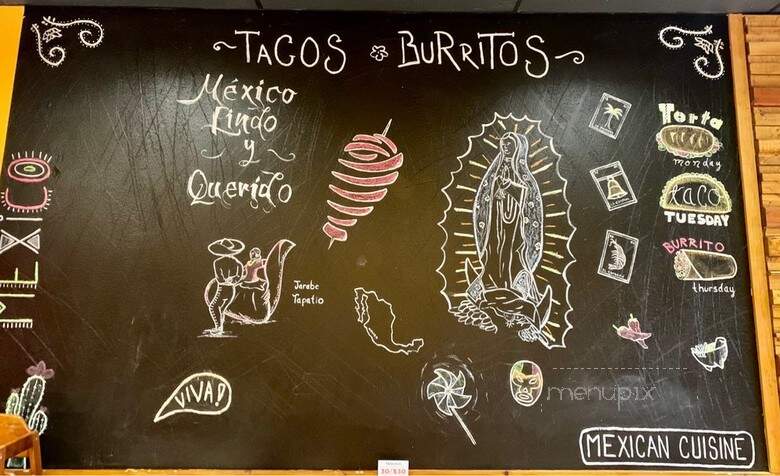 ~TACOS BURRITOS~
México
Lindo
y
Querido
MEXI
Jarabe
Tapatio
VIVA!
Torta
monday
taco
TUESDAY
BURRITO
thursday
menupix
MEXICAN CUISINE